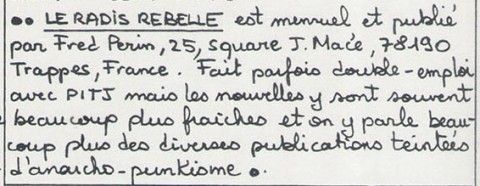 •• LE RADIS REBELLE est mensuel et publié
par Fred Perin, 25, square J. Macé, 78190
Trappes, France. Fait parfois double-emploi
avec PITJ mais les nouvelles y sont souvent
beaucoup plus fraiches et on y parle beau-
coup plus des diverses publications teintées
d'anarcho-punkisme •.